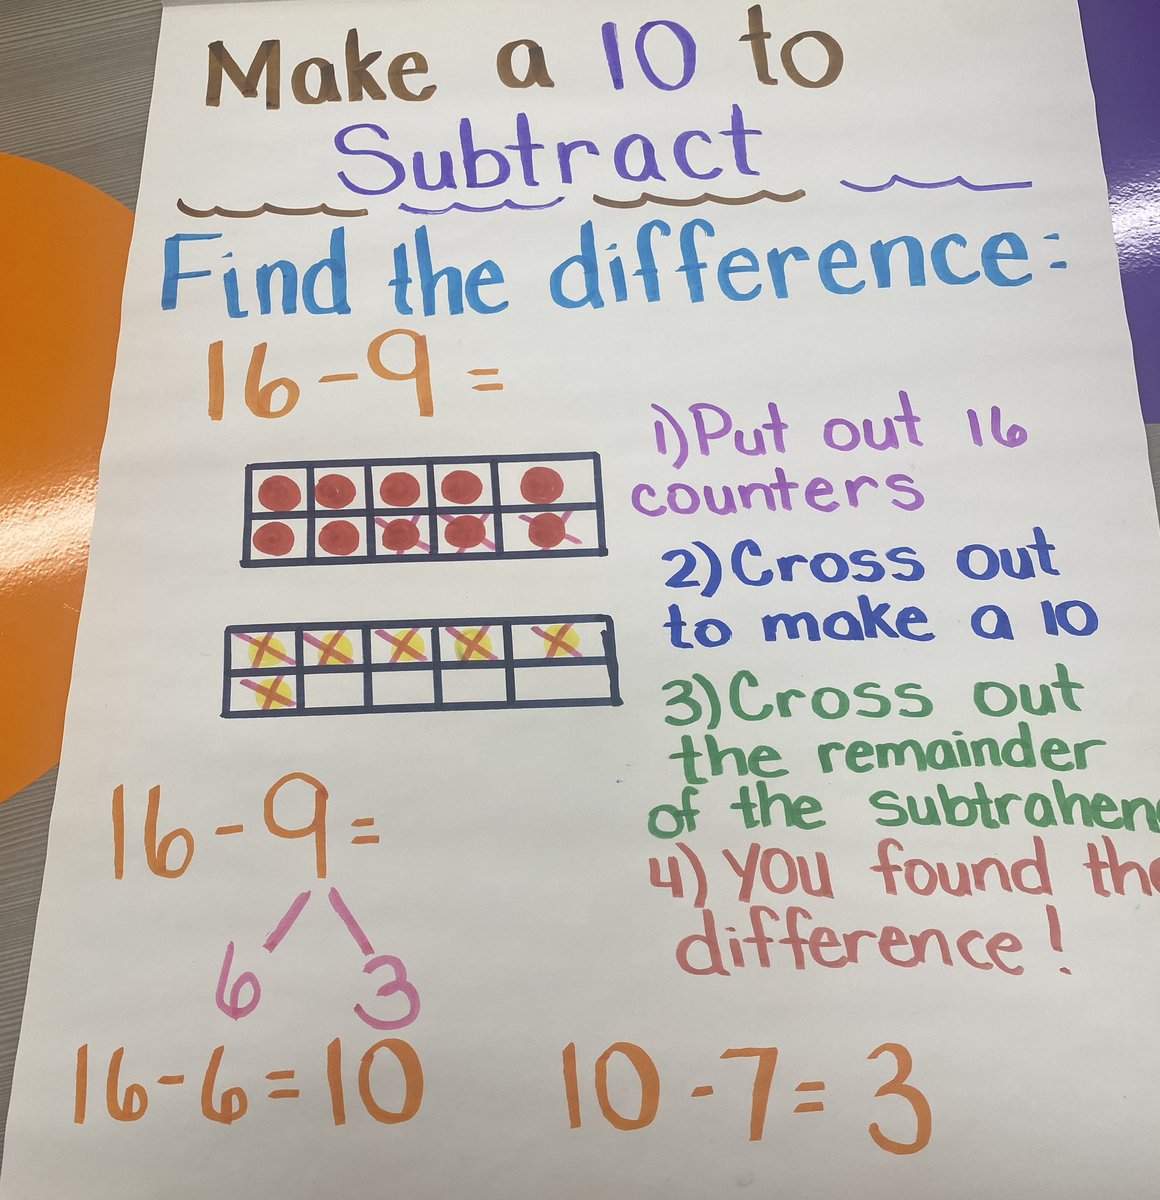 Make a 10 to
Subtract
Find the difference:
16-9=
1) Put out 16
counters
2) Cross out
to make a 10
3) Cross out
the remainder
of the subtrahen
4) You found the
difference!
16-9=
6 3
16-6=10 10-7=3